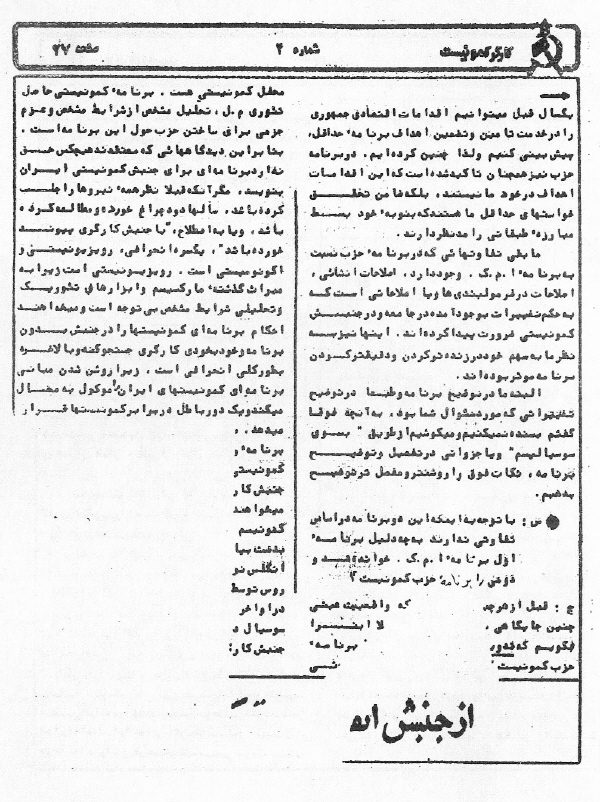 کارگر کمونیست
شماره ۴
صفحه ۲۷
یکسال قبل میتوانیم اقدامات اقتصادی جمهوری
را در خدمت تامین و تضمین اهداف برنامه حداقل،
پیش بینی کنیم ولذا چنین کرده ایم. در برنامه
حزب نیز همچنان تاکید شده است که این اقدامات
اهداف در خود ما نیستند، بلکه ضامن تحقق
خواستهای حداقل ما هستند که بنوبه خود بسط
مبارزه طبقاتی را مد نظر دارند.
مابقی تفاوتهائی که در برنامه حزب نسبت
به برنامه ا.م.ک. وجود دارد، اصلاحات انشائی،
اصلاحات در فرمولبندی ها و یا اصلاحاتی است که
به حکم تغییرات بوجود آمده در جامعه و در جنبش
کمونیستی ضرورت پیدا کرده اند. اینها نیز به
نظر ما به سهم خود در زنده تر کردن و دقیقتر کردن
برنامه موثر بوده اند.
البته ما در توضیح برنامه وظیفتا در توضیح
تغییراتی که مورد سئوال شما بود، به آنچه فوقا
گفتیم بسنده نمیکنیم و میکوشیم از طریق " بسوی
سوسیالیسم" و یا جزواتی در تفصیل و توضیح
برنامه، نکات فوق را روشنتر و مفصل تر توضیح
بدهیم.
س: با توجه به اینکه این دو برنامه در اساس
تفاوتی ندارند به چه دلیل برنامه
اول برنامه ا.م.ک. خوانده شد و
دومی را برنامه حزب کمونیست؟
ج: قبل از هر چد که واقعیت عینی
چنین جایگاهی، لا ابتدا
بگویم که قدور " برنامه
حزب کمونیست" نمی
محفل کمونیستی هست. برنامه کمونیستی حاصل
تئوری م.ل، تحلیل مشخص از شرایط مشخص و عزم
جزمی برای ساختن حزب حول این برنامه است.
بنابراین دیدگاههائی که معتقدند هیچکس حق
ندارد برنامه ای برای جنبش کمونیستی ایران
بنویسد، مگر آنکه قبلا نظر همه نیروها را جلب
کرده باشد، سالها دود چراغ خورده و مطالعه کرده
باشد، و یا به اصطلاح، "با جنبش کارگری پیوند
خورده باشد"، یکسره انحرافی، رویزیونیستی و
اکونومیستی است. رویزیونیستی است زیرا به
میراث گذشته مارکسیسم و ابزارهای تئوریک
و تحلیلی شرایط مشخص بی توجه است و میخواهند
احکام برنامه ای کمونیستها را در جنبش بدون
برنامه و خودبخودی کارگری جستجو کنند و بالاخره
بطور کلی انحرافی است، زیرا روشن شدن مبانی
برنامه ای کمونیستهای ایران را موکول به محال
میکند و یک دور باطل در برابر کمونیستها قرار
میدهد.
برنامه و
کمونیستو
جنبش کار
میخواهند
کمونیسم
بدست بیا
انگلس نو
روس توسط
در اواخر
سوسیال د
جنبش کار
از جنبش